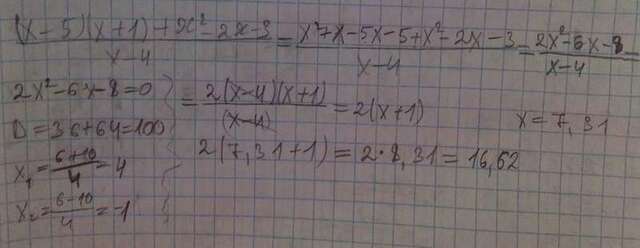 (x-5)(x+1)+x²-2x-3/x-4 = x²+x-5x-5+x²-2x-3/x-4 = 2x²-6x-8/x-4 =
2x²-6x-8=0
D=36+64=100
x₁=6+10/4=4
x₂=6-10/4=-1
= 2(x-4)(x+1)/(x-4) = 2(x+1)
x=7,31
2(7,31+1)=2·8,31=16,62